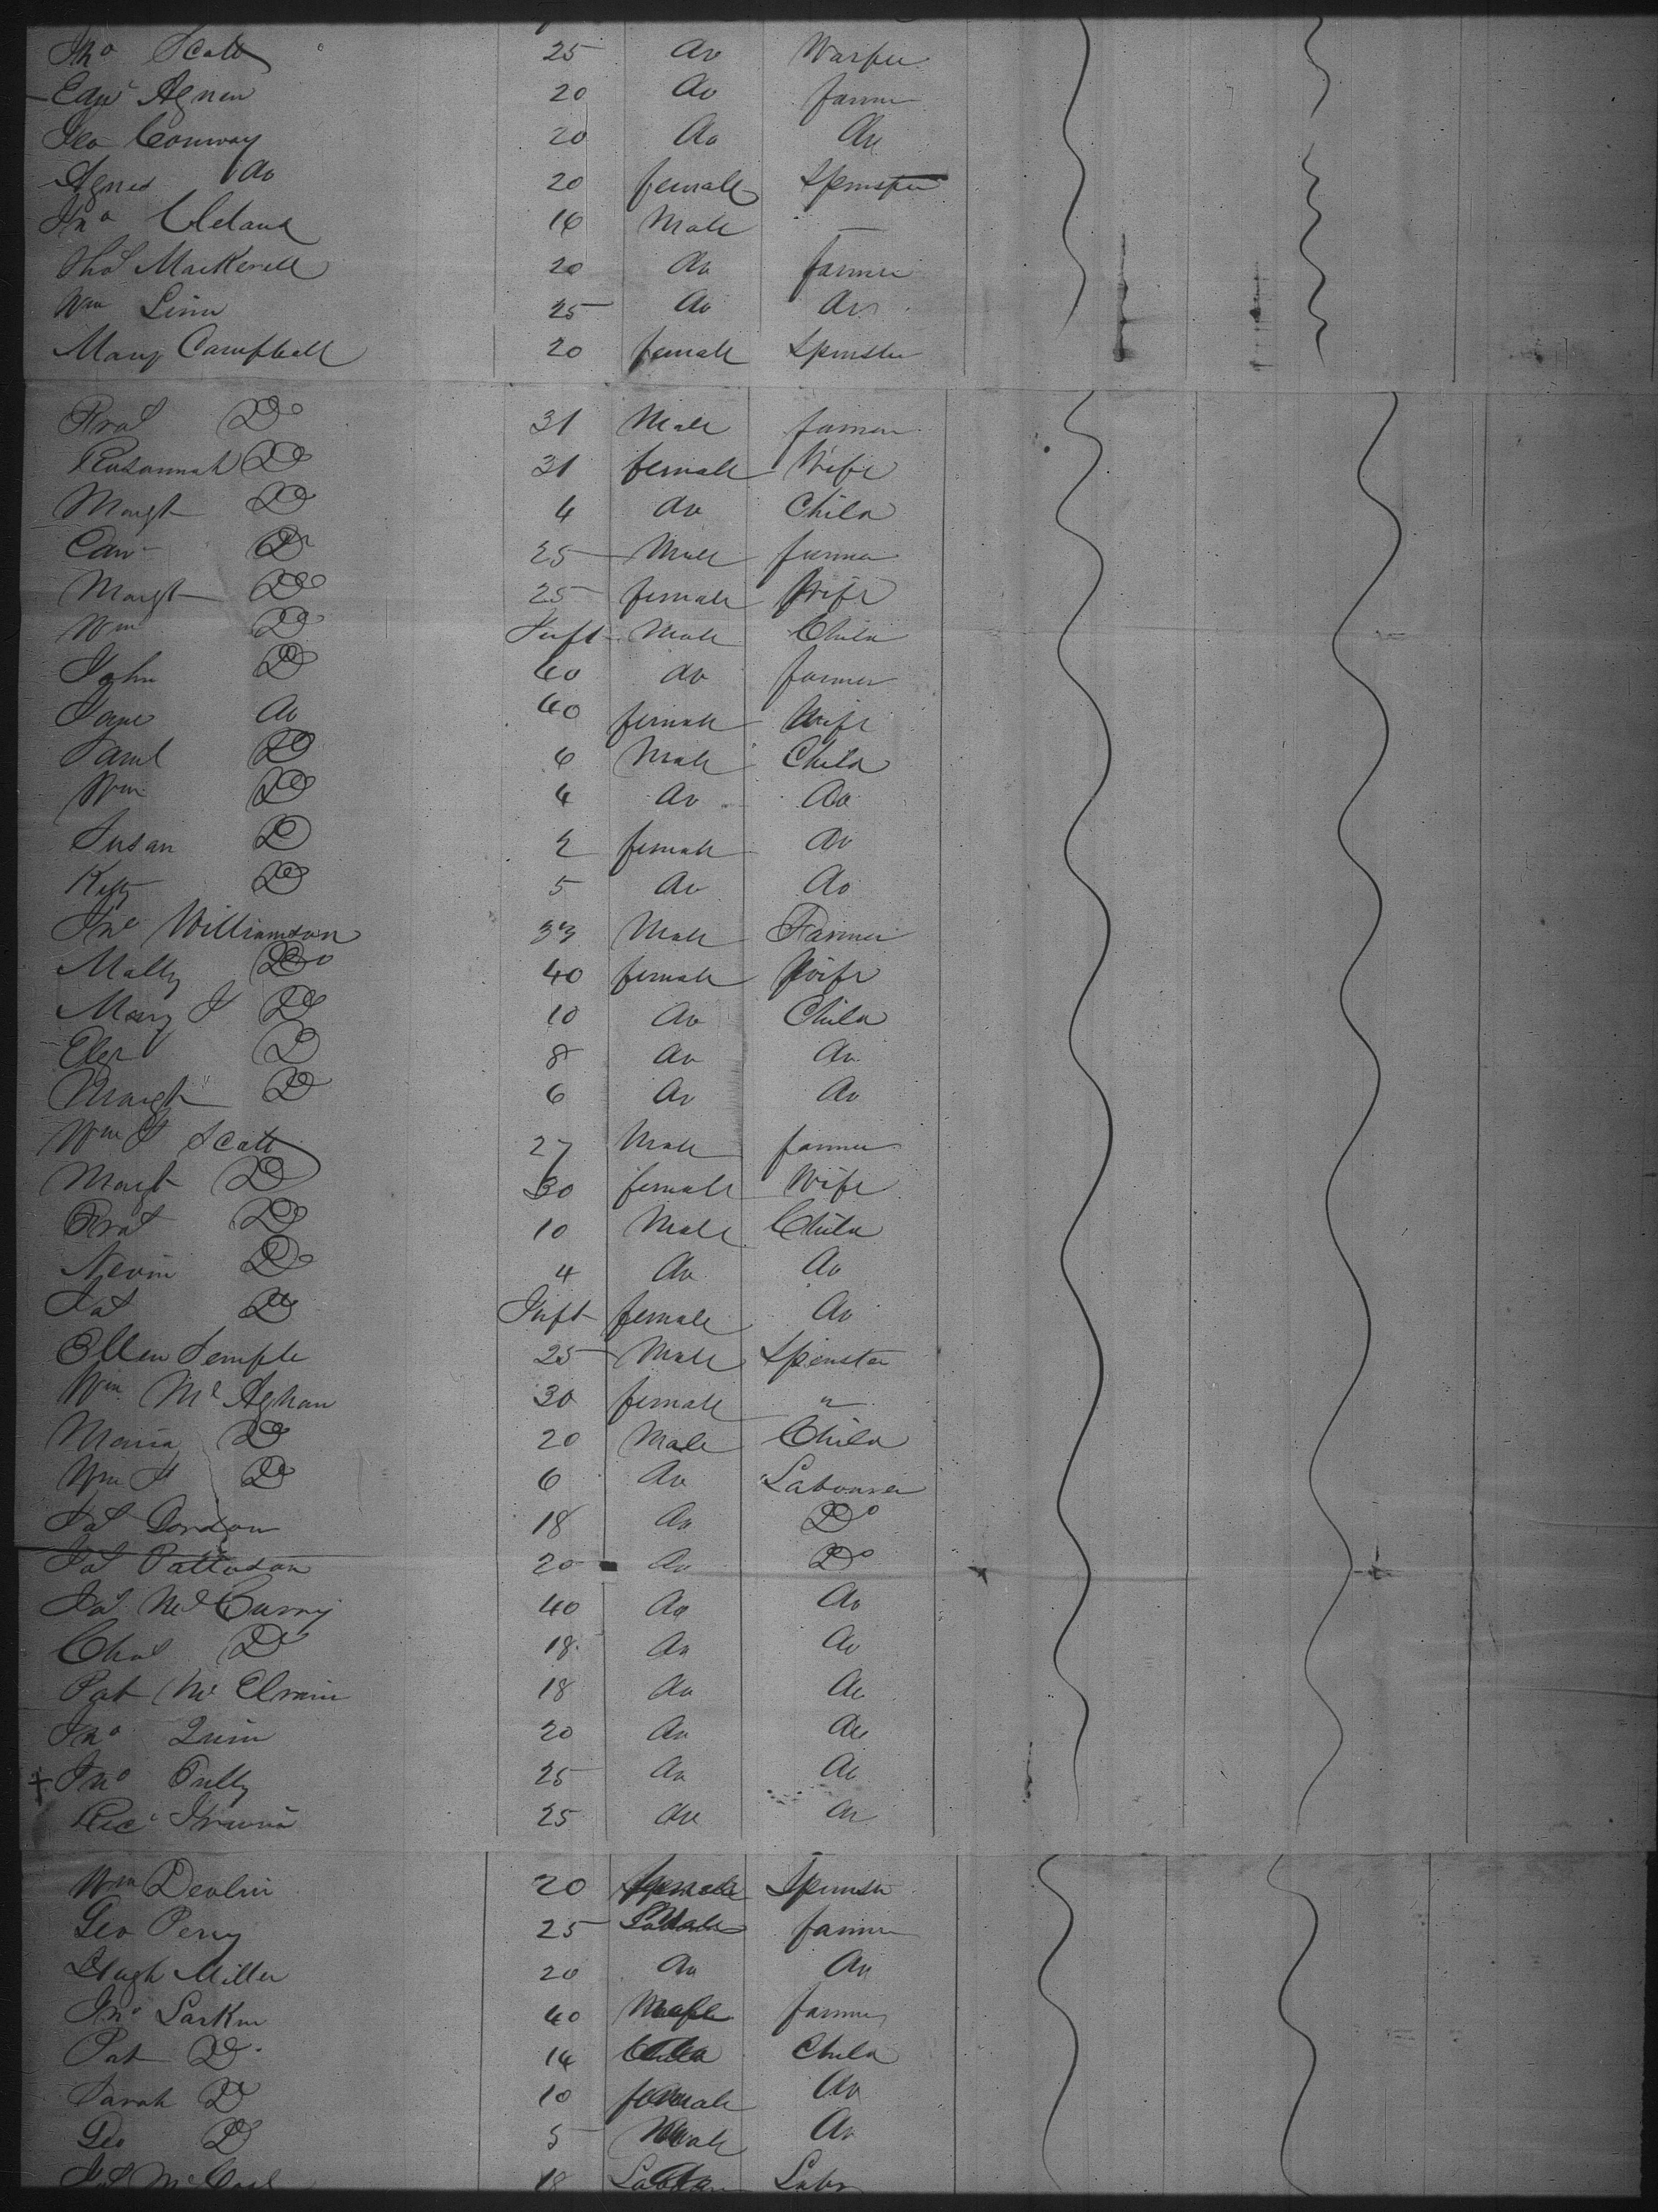 Jno Scott 25 do Warper
Edwd Agnew 20 do farmer
Geo Conway 20 do do
Agnes do 20 female Spinster
Jno Cleland 16 Male —
Thos Mackerell 20 do farmer
Wm Linn 25 do do
Mary Campbell 20 female Spinster
Robt Do 31 Male farmer
Rosannah Do 31 female Wife
Margt Do 4 do Child
Edwd Do 25 Male farmer
Margt Do 25 female Wife
Wm Do Inft Male Child
John Do 40 do farmer
Jane do 40 female Wife
Saml Do 6 Male Child
Wm Do 4 do do
Susan Do 2 female do
Kitty Do 5 do do
Jno Williamson 33 Male Farmer
Mally Do 40 female Wife
Mary J Do 10 do Child
Eliza Do 8 do do
Margt Do 6 do do
Wm J Scott 27 Male farmer
Margt Do 30 female Wife
Robt Do 10 Male Child
Nevin Do 4 do do
Jas Do Inft female do
Ellen Temple 25 Male Spinster
Wm Mc Aghan 30 female "
Maria Do 20 Male Child
Wm J Do 6 do Labourer
Jas Gordon 18 do Do
Jas Patterson 20 do Do
Jas McCurry 40 do do
Chas Do 18 do do
Pat Mc Elwain 18 do do
Jno Quinn 20 do do
+ Jno Tully 25 do do
25 do do
Wm Devlin 20 female Spinster
Geo Perry 25 farmer
Hugh Miller 20 do do
Jno Larkin 40 Male farmer
Pat Do 14 Child
Sarah Do 10 female do
Geo Do 5 Male do
18 Labr